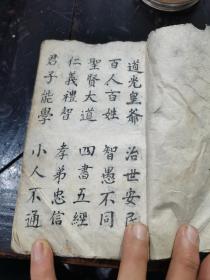 道光皇爺 治世安民
百人百姓 智愚不同
聖賢大道 四書五經
仁義禮智 孝弟忠信
君子能學 小人不通